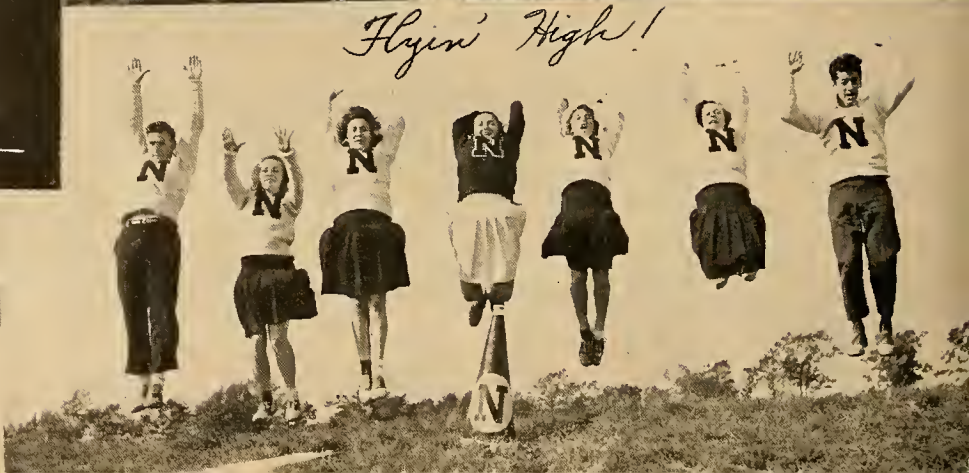 Flyin' High!
N N N N N N N
N